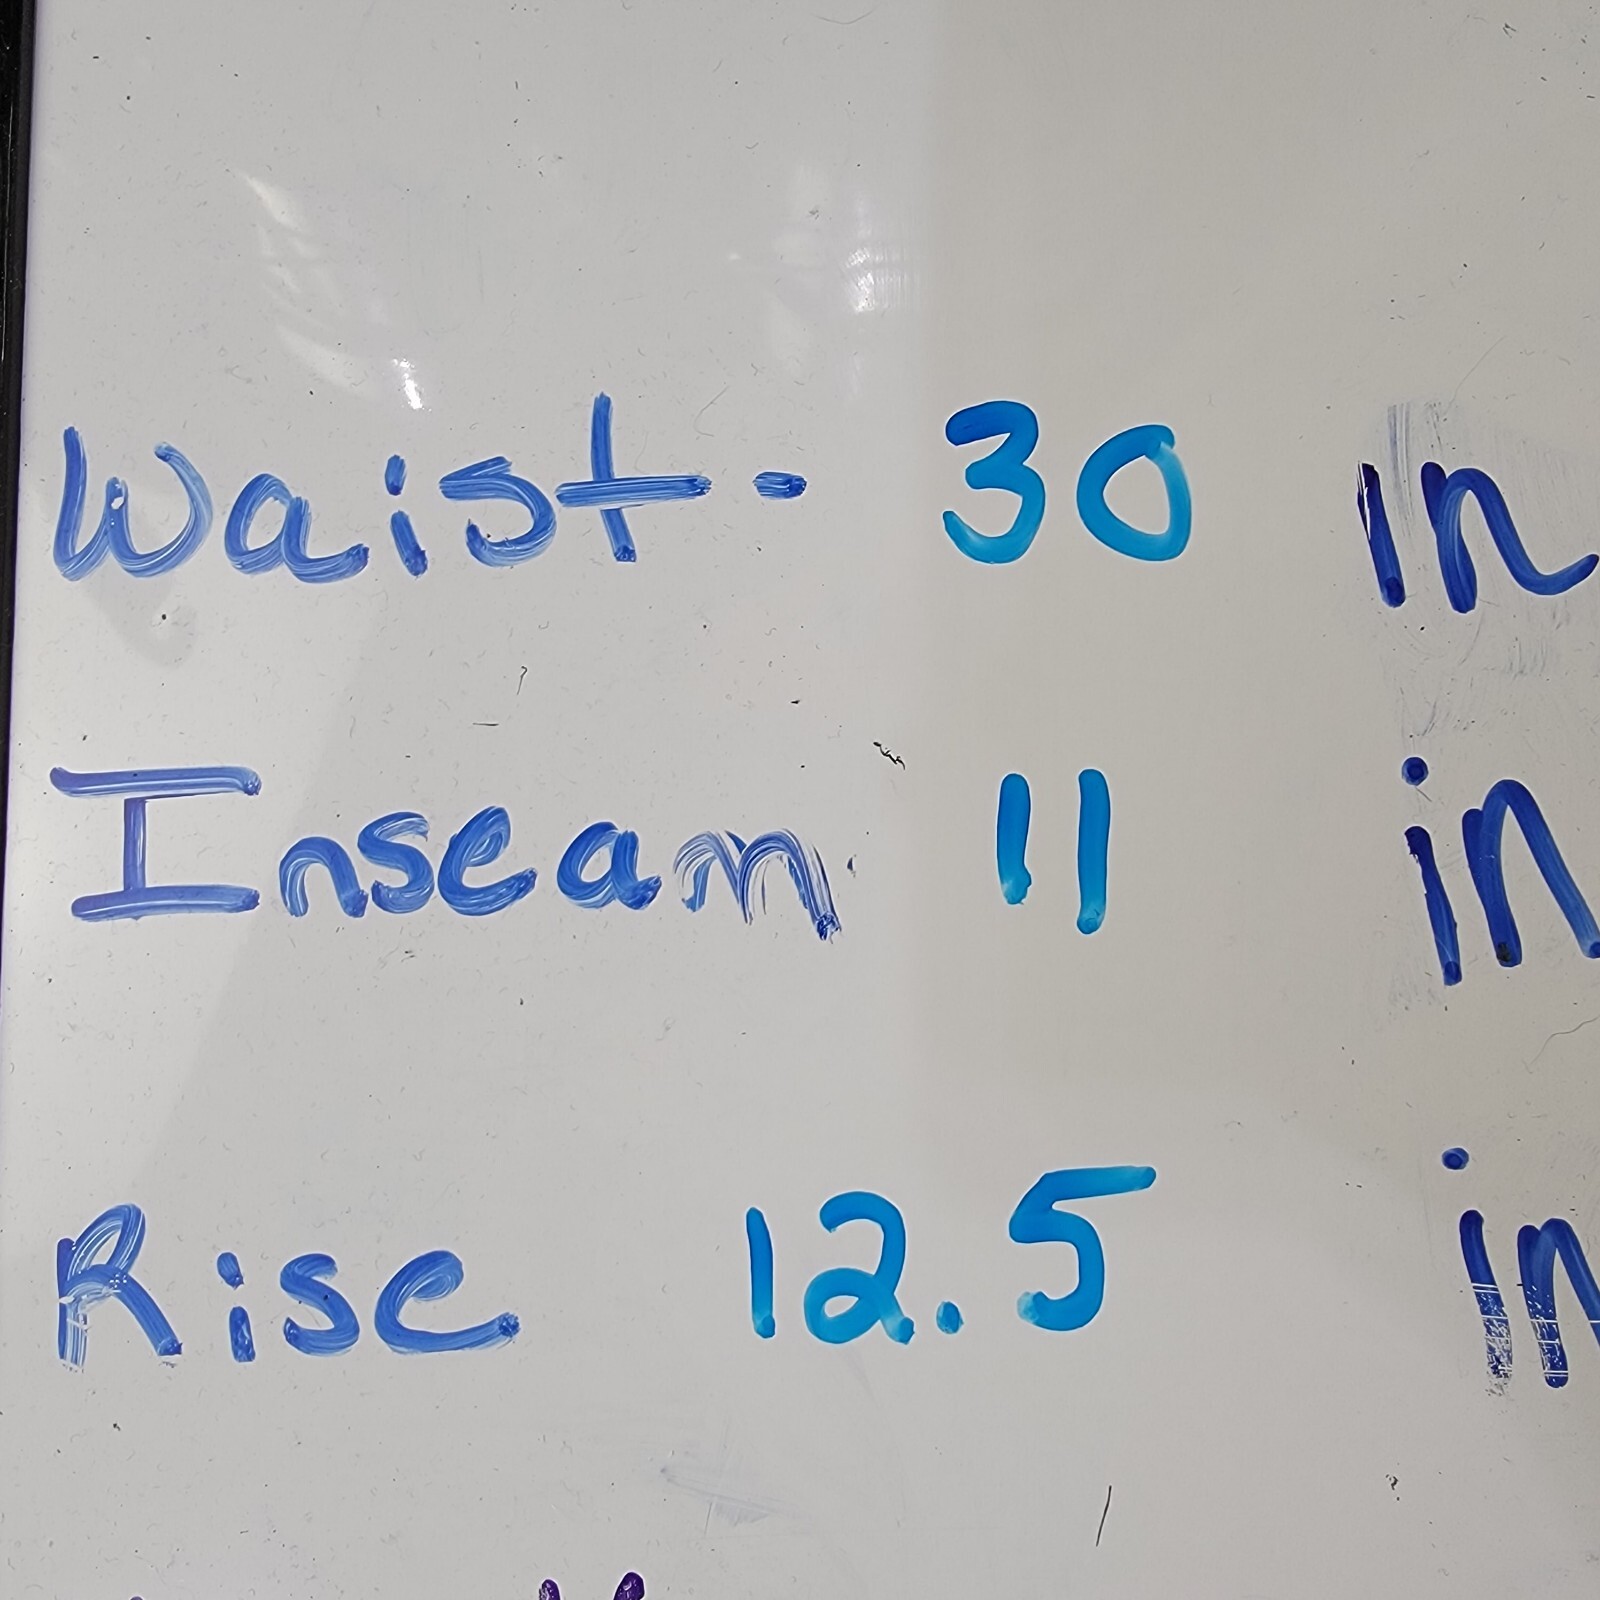 Waist - 30 in
Inseam 11 in
Rise 12.5 in